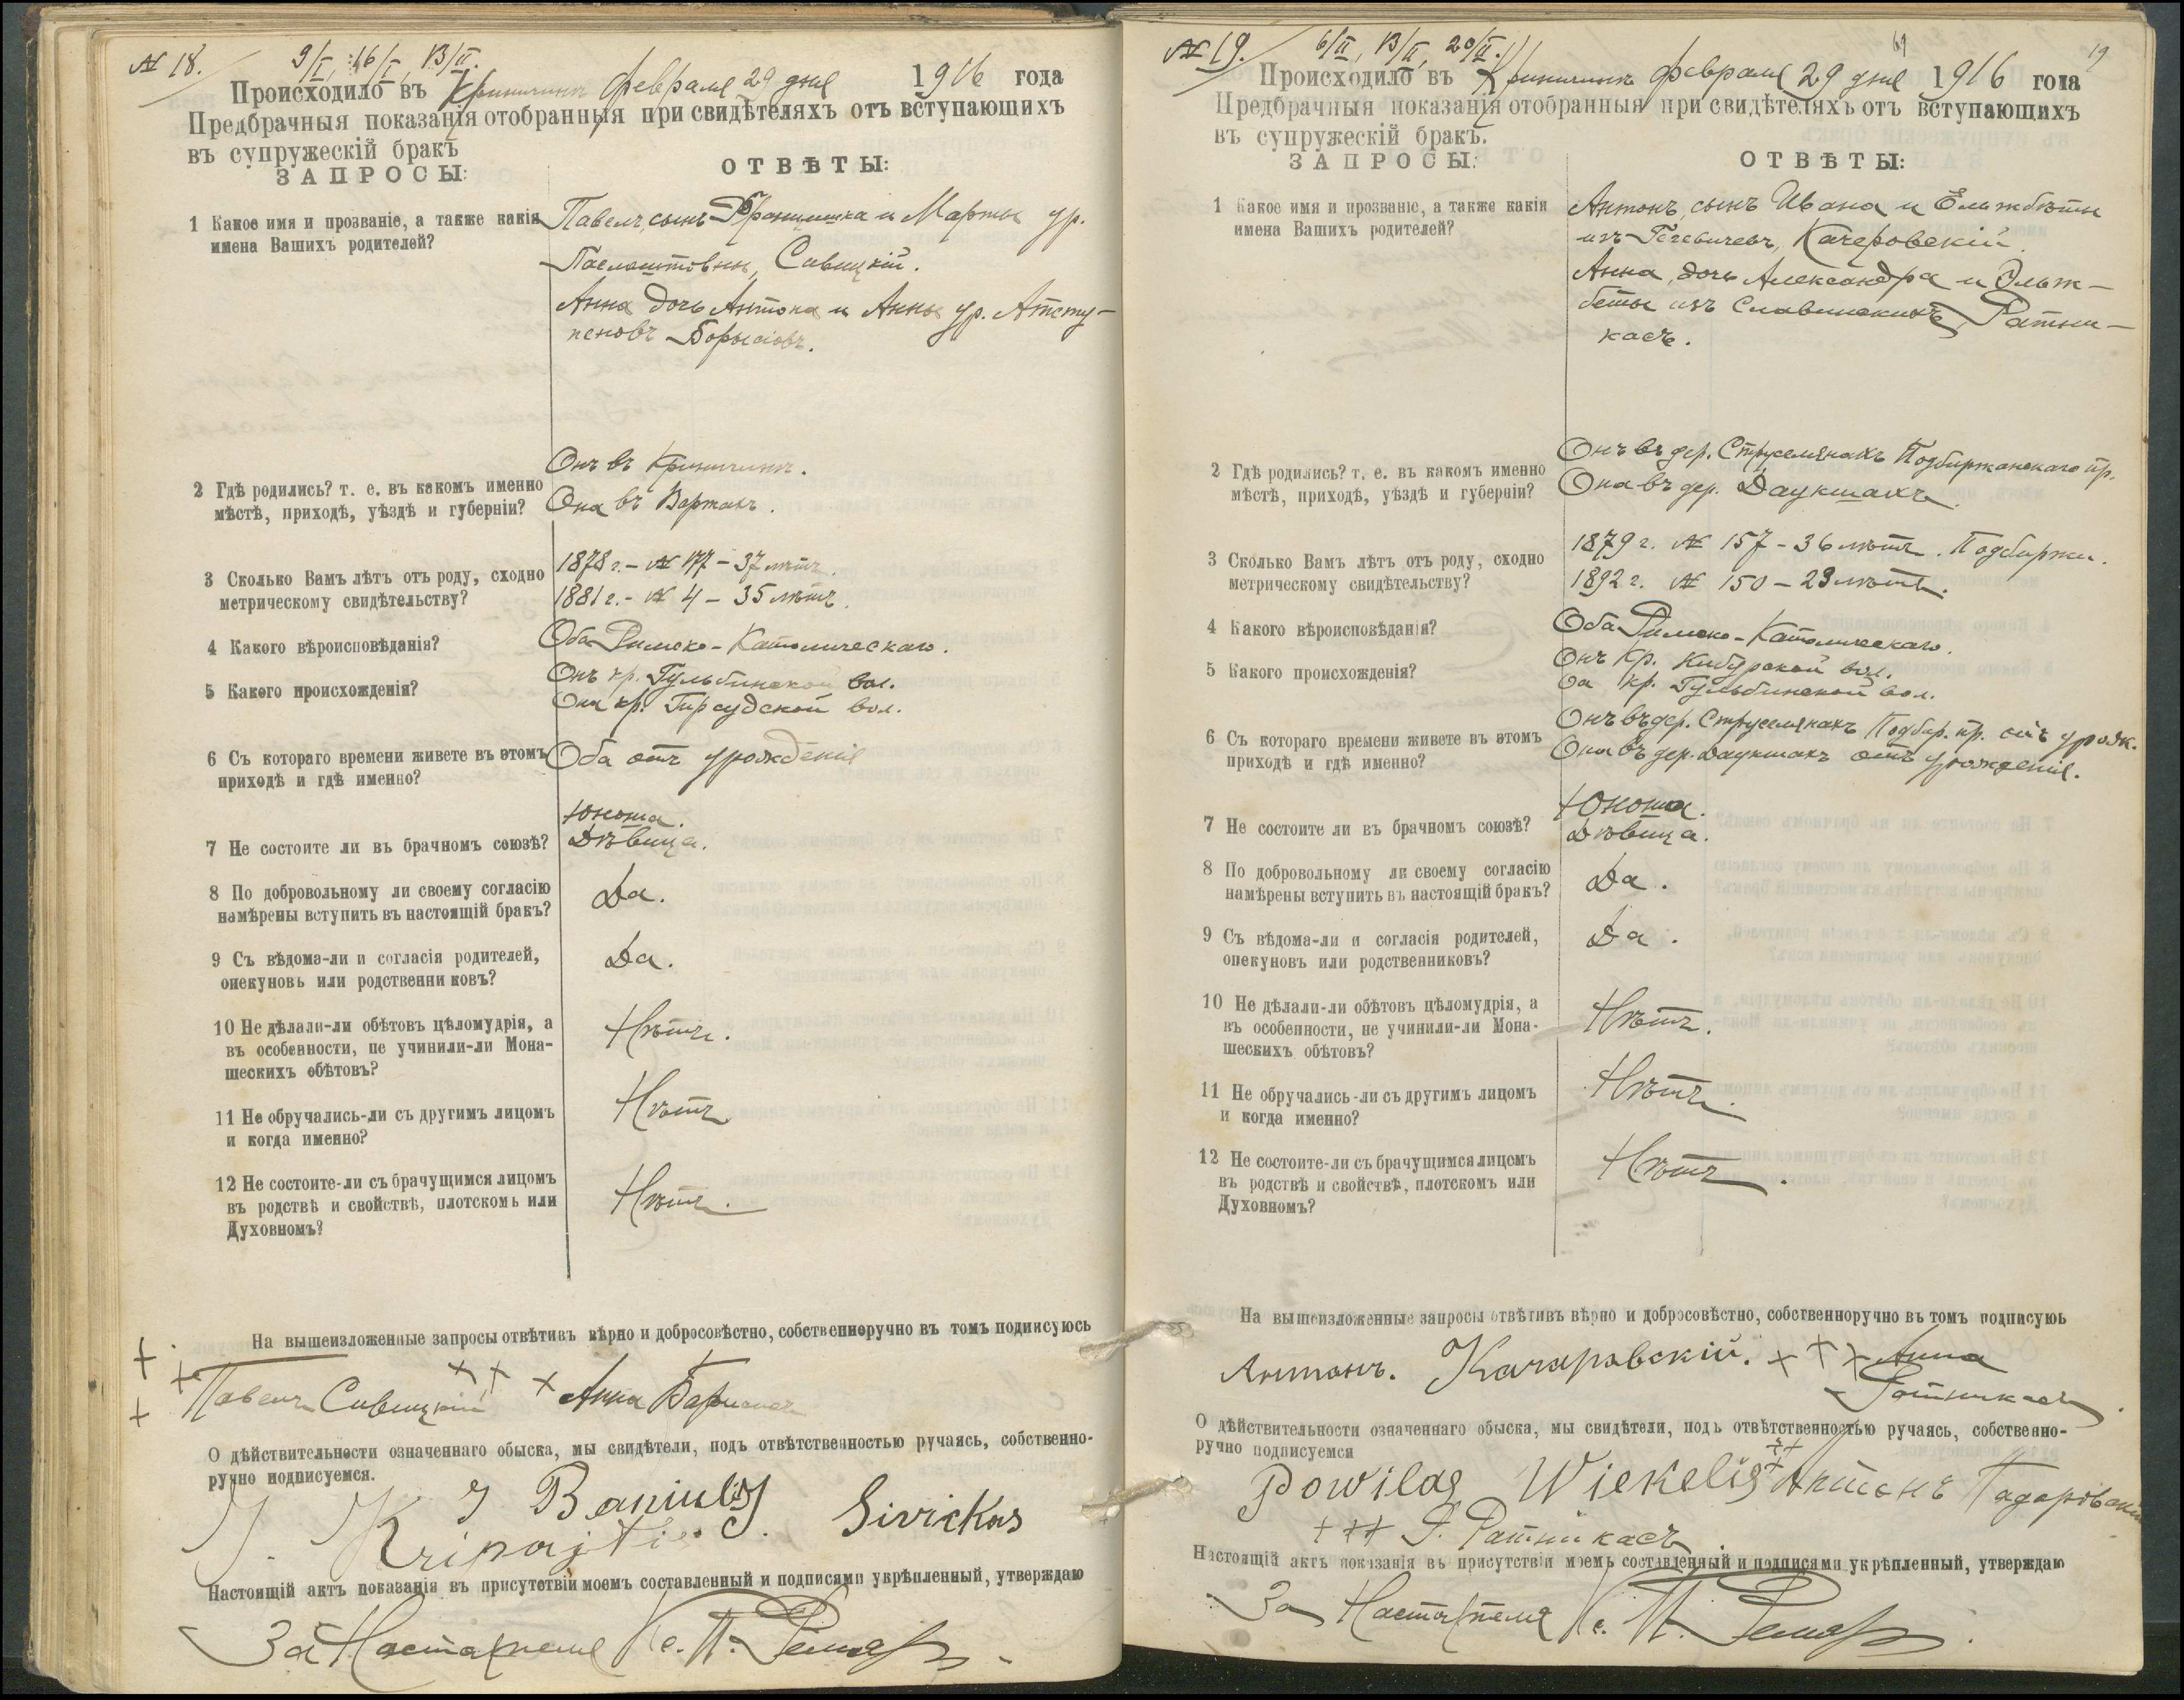 № 18.
9/I, 16/I, 13/II.
Происходило въ Криничинѣ февраля 29 дня 1916 года
Предбрачныя показанія отобранныя при свидѣтеляхъ отъ вступающихъ
въ супружескій бракъ
ЗАПРОСЫ:
ОТВѢТЫ:
1 Какое имя и прозваніе, а также какія
имена Вашихъ родителей?
Павелъ, сынъ Францишка и Марты ур.
Савицкій.
Анна дочь Антона и Анны ур.
Борысовъ.
2 Гдѣ родились? т. е. въ какомъ именно
мѣстѣ, приходѣ, уѣздѣ и губерніи?
Онъ въ Криничинѣ.
Она въ
3 Сколько Вамъ лѣтъ отъ роду, сходно
метрическому свидѣтельству?
1878 г. - № 177 - 37 лѣтъ.
1881 г. - № 4 - 35 лѣтъ.
4 Какого вѣроисповѣданія?
Оба Римско-Католическаго.
5 Какого происхожденія?
Онъ кр. Гульбинской вол.
Она кр. Гирсудской вол.
6 Съ котораго времени живете въ этомъ
приходѣ и гдѣ именно?
Оба отъ урожденія
7 Не состоите ли въ брачномъ союзѣ?
Юноша.
Дѣвица.
8 По добровольному ли своему согласію
намѣрены вступить въ настоящій бракъ?
Да.
9 Съ вѣдома-ли и согласія родителей,
опекуновь или родственни ковъ?
Да.
10 Не дѣлали-ли обѣтовъ цѣломудрія, а
въ особенности, не учинили-ли Мона-
шескихъ обѣтовъ?
Нѣтъ.
11 Не обручались-ли съ другимъ лицомъ
и когда именно?
Нѣтъ
12 Не состоите-ли съ брачущимся лицомъ
въ родствѣ и свойствѣ, плотскомь или
Духовномъ?
Нѣтъ.
На вышеизложенные запросы отвѣтивъ вѣрно и добросовѣстно, собственноручно въ томъ подписуюсь
Павелъ Сивицкій + + + Анна
О дѣйствительности означеннаго обыска, мы свидѣтели, подъ отвѣтственностью ручаясь, собственно-
ручно подписуемся.
J Baniulis J. Sivickas
J. Kripajtis
Настоящій актъ показанія въ присутствіи моемъ составленный и подписями укрѣпленный, утверждаю
За Настоятеля Кс. П.
№ 19.
6/II, 13/II, 20/II.
69
19
Происходило въ Криничинѣ февраля 29 дня 1916 года
Предбрачныя показанія отобранныя при свидѣтеляхъ отъ вступающихъ
въ супружескій бракъ.
ЗАПРОСЫ:
ОТВѢТЫ:
1 Какое имя и прозваніе, а также какія
имена Вашихъ родителей?
Антонъ, сынъ Ивана и Ельжбеты
изъ Качеровскій.
Анна, дочь Александра и Эльж-
беты изъ Славинскихъ Ратни-
касъ.
2 Гдѣ родились? т. е. въ какомъ именно
мѣстѣ, приходѣ, уѣздѣ и губерніи?
Онъ въ дер. Струселянахъ Подбиржанскаго пр.
Она въ дер. Даукшахъ.
3 Сколько Вамъ лѣтъ отъ роду, сходно
метрическому свидѣтельству?
1879 г. № 157 - 36 лѣтъ. Подбиржи.
1892 г. № 150 - 23 лѣтъ.
4 Какого вѣроисповѣданія?
Оба Римско-Католическаго.
5 Какого происхожденія?
Онъ Кр. Кибурской вол.
Она кр. Гульбинской вол.
6 Съ котораго времени живете въ этомъ
приходѣ и гдѣ именно?
Онъ въ дер. Струселянахъ Подбир. пр. отъ урожд.
Она въ дер. Даукшахъ отъ урожденія.
7 Не состоите ли въ брачномъ союзѣ?
Юноша.
Дѣвица.
8 По добровольному ли своему согласію
намѣрены вступить въ настоящій бракъ?
Да.
9 Съ вѣдома-ли и согласія родителей,
опекуновъ или родственниковъ?
Да.
10 Не дѣлали-ли обѣтовъ цѣломудрія, а
въ особенности, не учинили-ли Мона-
шескихъ обѣтовъ?
Нѣтъ.
11 Не обручались-ли съ другимъ лицомъ
и когда именно?
Нѣтъ.
12 Не состоите-ли съ брачущимся лицомъ
въ родствѣ и свойствѣ, плотскомъ или
Духовномъ?
Нѣтъ.
На вышеизложенные запросы отвѣтивъ вѣрно и добросовѣстно, собственноручно въ томъ подписуюь
Антонъ. Качаровскій. + + + Анна
Ратникасъ.
О дѣйствительности означеннаго обыска, мы свидѣтели, подъ отвѣтственностью ручаясь, собственно-
ручно подписуемся
Powilas Wiekelis +++ Антонъ
+ + + Ратникасъ.
Настоящій актъ показанія въ присутствіи моемъ составленный и подписями укрѣпленный, утверждаю
За Настоятеля Кс. П.